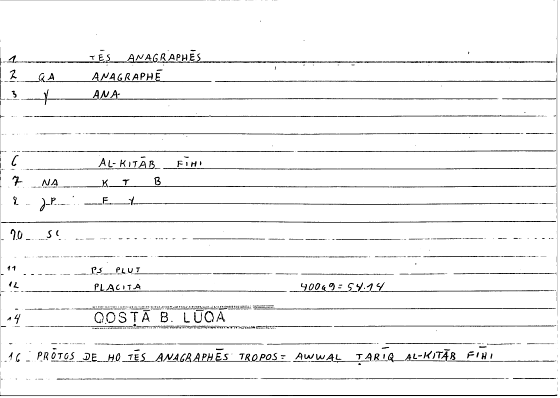 1 TĒS ANAGRAPHĒS
2 QA ANAGRAPHĒ
3 Y ANA
6 AL-KITĀB FĪHI
7 NA K T B
8 JP F Y
10 SC
11 PS PLUT
12 PLACITA 40069=54.14
14 QOSṬĀ B. LŪQA
16 PRŌTOS DE HO TĒS ANAGRAPHĒS TROPOS= AWWAL ṬARĪQ AL-KITĀB FĪHI